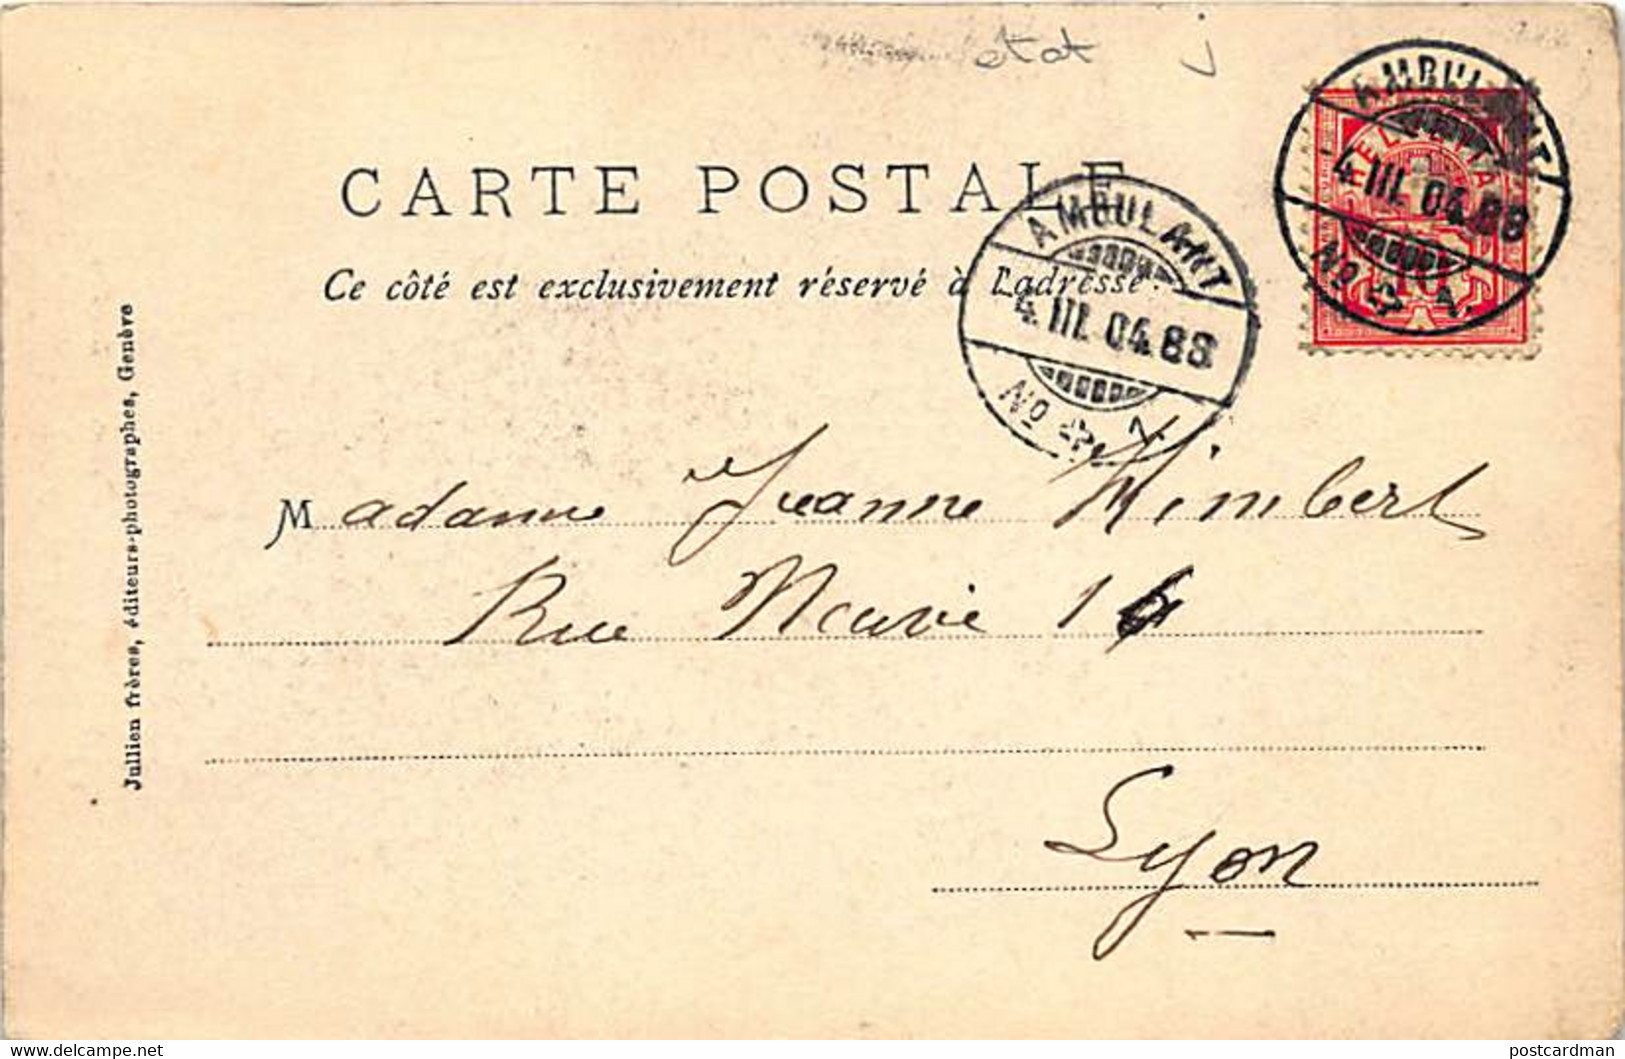 etat j
CARTE POSTALE
Ce côté est exclusivement réservé à l'adresse.
AMBULANT
4.III.04.88
No 1.
HELVETIA
10
AMBULANT
4.III.04.88
No 1.
Madame Jeanne Himbert
Rue Mavie 16
Lyon
Jullien frères, éditeurs-photographes, Genève
postcardman
delcampe.net